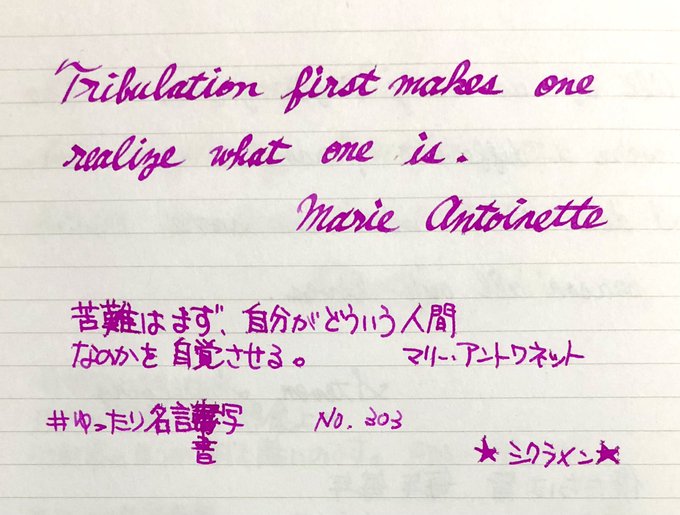 Tribulation first makes one
realize what one is.
Marie Antoinette
苦難はまず、自分がどういう人間
なのかを自覚させる。 マリー・アントワネット
#ゆったり名言書写 No. 303
★シクラメン★